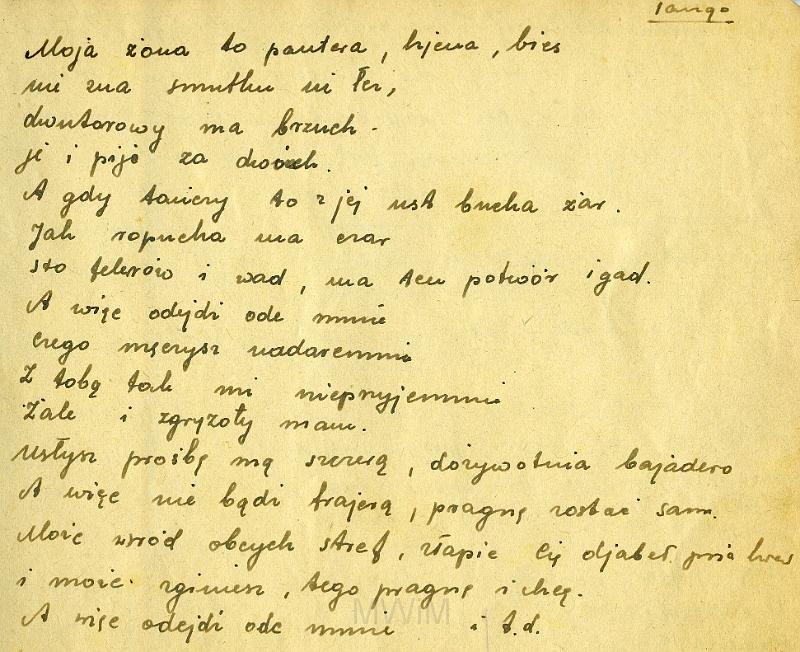 Tango
Moja żona to pantera, hjena, bies
nie zna smutku ni łez,
dwutorowy ma brzuch.
je i pije za dwóch.
A gdy tańczy to z jej ust bucha żar.
Jak ropucha ma czar
sto felerów i wad, ma ten potwór i gad.
A więc odejdź ode mnie
czego męczysz nadaremnie
Z tobą tak mi nieprzyjemnie
Żale i zgryzoty mam.
Usłysz prośbę mą szczerą, dożywotnia bajadero
A więc nie bądź frajerą, pragnę zostać sam.
Może wśród obcych stref, złapie Cię djabeł psia krew
i może zginiesz, tego pragnę i chcę.
A więc odejdź ode mnie i t.d.
MWiM